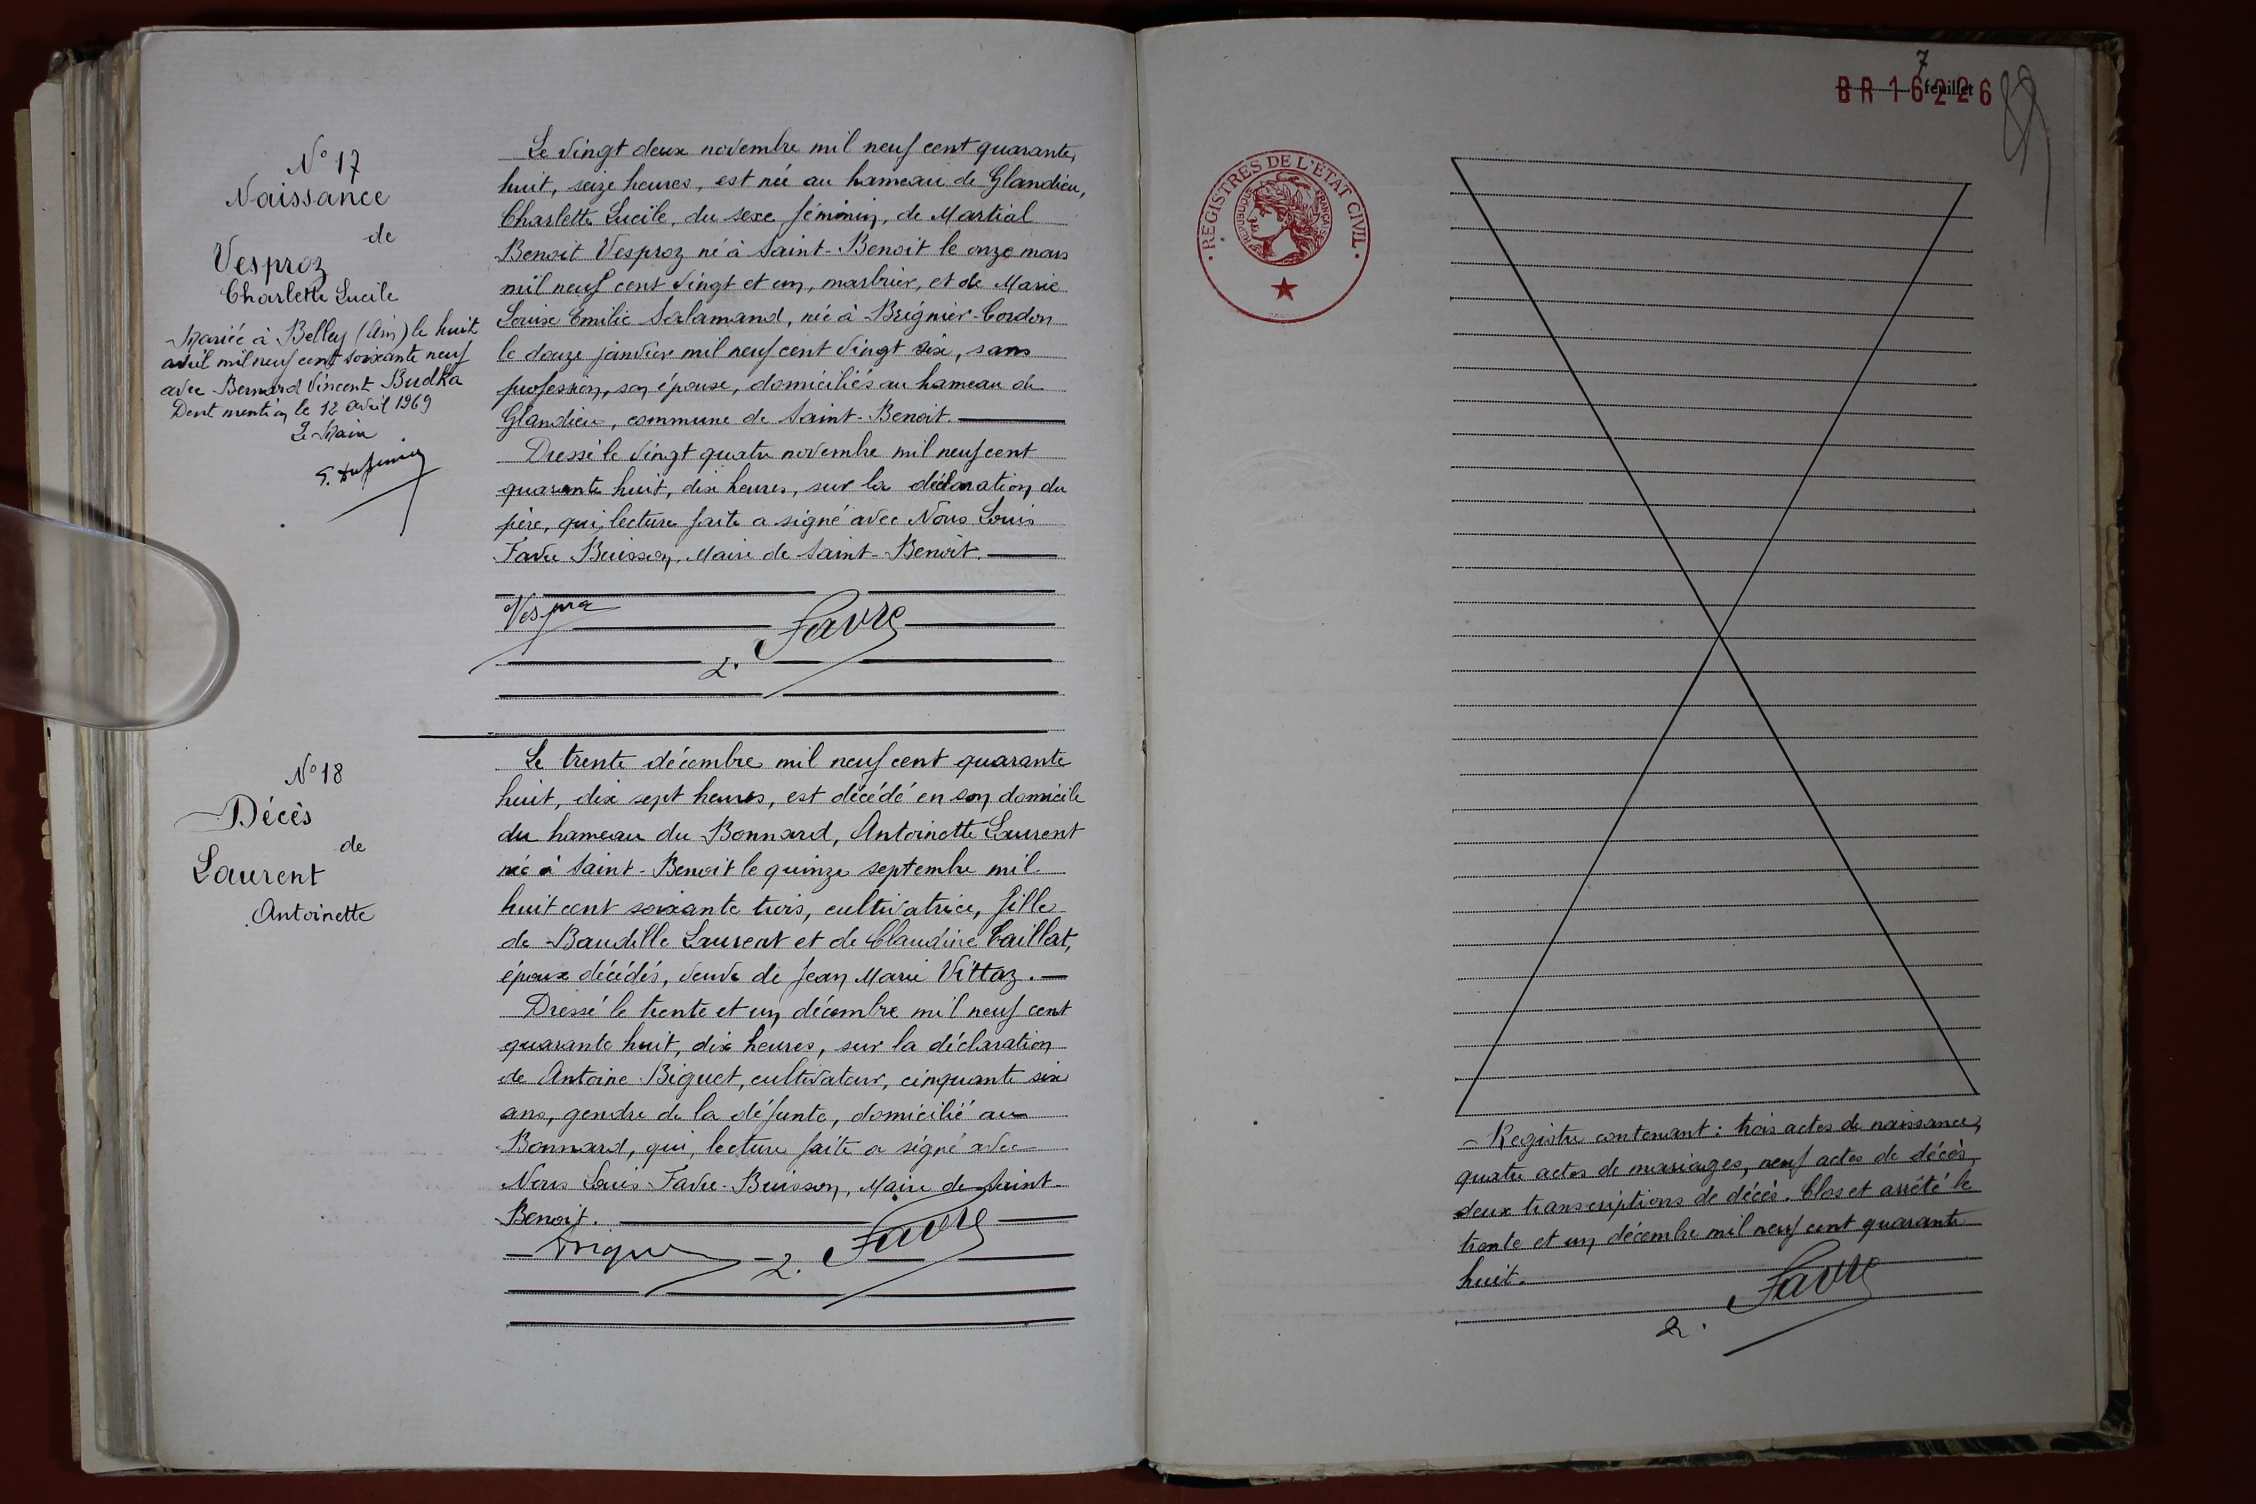 N° 17
Naissance
de
Vesproz
Charlette Lucile
Mariée à Belley (Ain) le huit
avril mil neuf cent soixante neuf
avec Bernard Vincent Budka
Dont mention le 12 avril 1969
Le Maire
Le vingt deux novembre mil neuf cent quarante
huit, seize heures, est née au hameau de Glandieu,
Charlette Lucile, du sexe féminin, de Martial
Benoit Vesproz né à Saint-Benoit le onze mars
mil neuf cent vingt et un, marbrier, et de Marie
Louise Emilie Salamand, née à Brégnier-Cordon
le douze janvier mil neuf cent vingt six, sans
profession, son épouse, domiciliés au hameau de
Glandieu, commune de Saint-Benoit.
Dressé le vingt quatre novembre mil neuf cent
quarante huit, dix heures, sur la déclaration du
père, qui, lecture faite a signé avec Nous Louis
Favre Buisson, Maire de Saint-Benoit.
Vesproz
L. Favre
N° 18
Décès
de
Laurent
Antoinette
Le trente décembre mil neuf cent quarante
huit, dix sept heures, est décédé en son domicile
du hameau du Bonnard, Antoinette Laurent
née à Saint-Benoit le quinze septembre mil
huit cent soixante trois, cultivatrice, fille
de Baudille Laurent et de Claudine Caillat,
époux décédés, veuve de Jean Marie Vittaz.
Dressé le trente et un décembre mil neuf cent
quarante huit, dix heures, sur la déclaration
de Antoine Biguet, cultivateur, cinquante six
ans, gendre de la défunte, domicilié au
Bonnard, qui, lecture faite a signé avec
Nous Louis Favre-Buisson, Maire de Saint-
Benoit.
L. Favre
7
feuillet
BR 16226
REGISTRES DE L'ÉTAT CIVIL
REPUBLIQUE FRANÇAISE
Registre contenant : trois actes de naissance,
quatre actes de mariages, neuf actes de décès,
deux transcriptions de décès. Clos et arrêté le
trente et un décembre mil neuf cent quarante
huit.
L. Favre